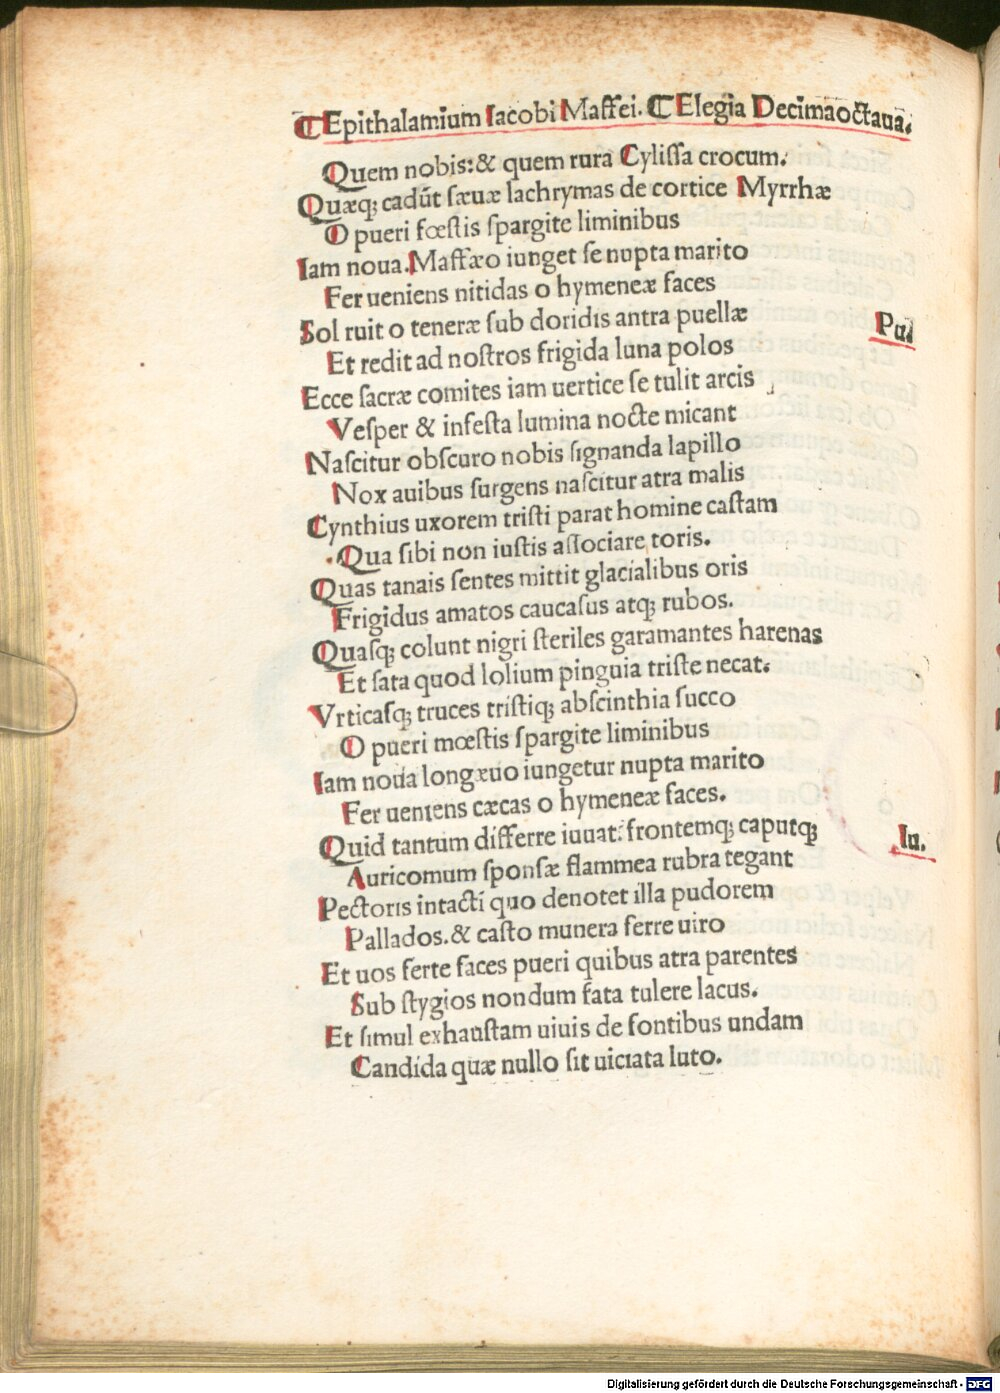 ⁋Epithalamium Iacobi Maffei. ⁋Elegia Decimaoctaua.
Quem nobis:& quem rura Cylissa crocum.
Quæq; cadūt sæuæ lachrymas de cortice Myrrhæ
O pueri fœstis spargite liminibus
Iam noua. Maffæo iunget se nupta marito
Fer ueniens nitidas o hymeneæ faces
Sol ruit o teneræ sub doridis antra puellæ Pu.
Et redit ad nostros frigida luna polos
Ecce sacræ comites iam uertice se tulit arcis
Vesper & infesta lumina nocte micant
Nascitur obscuro nobis signanda lapillo
Nox auibus surgens nascitur atra malis
Cynthius uxorem tristi parat homine castam
Qua sibi non iustis associare toris.
Quas tanais sentes mittit glacialibus oris
Frigidus amatos caucasus atq; rubos.
Quasq; colunt nigri steriles garamantes harenas
Et sata quod lolium pinguia triste necat.
Vrticasq; truces tristiq; abscinthia succo
O pueri mœstis spargite liminibus
Iam noua longæuo iungetur nupta marito
Fer ueniens cæcas o hymeneæ faces.
Quid tantum differre iuuat: frontemq; caputq; Iu.
Auricomum sponsæ flammea rubra tegant
Pectoris intacti quo denotet illa pudorem
Pallados. & casto munera ferre uiro
Et uos ferte faces pueri quibus atra parentes
Sub stygios nondum fata tulere lacus.
Et simul exhaustam uiuis de fontibus undam
Candida quæ nullo sit uiciata luto.
Digitalisierung gefördert durch die Deutsche Forschungsgemeinschaft - DFG